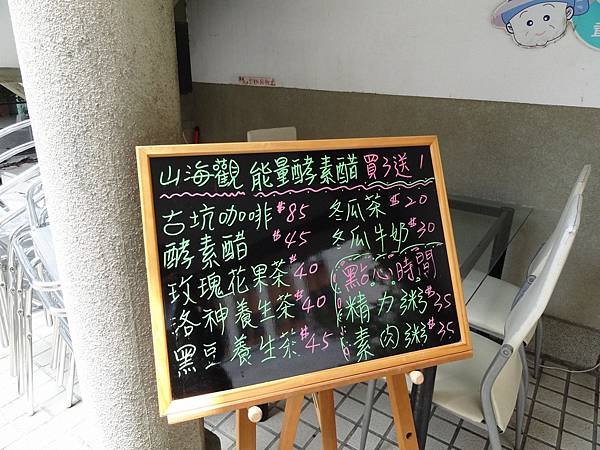 山海觀 能量酵素醋 買3送1
古坑咖啡 $85
酵素醋 $45
玫瑰花果茶 $40
洛神養生茶 $40
黑豆養生茶 $45
冬瓜茶 $20
冬瓜牛奶 $30
點心時間
精力粥 $35
素肉粥 $35